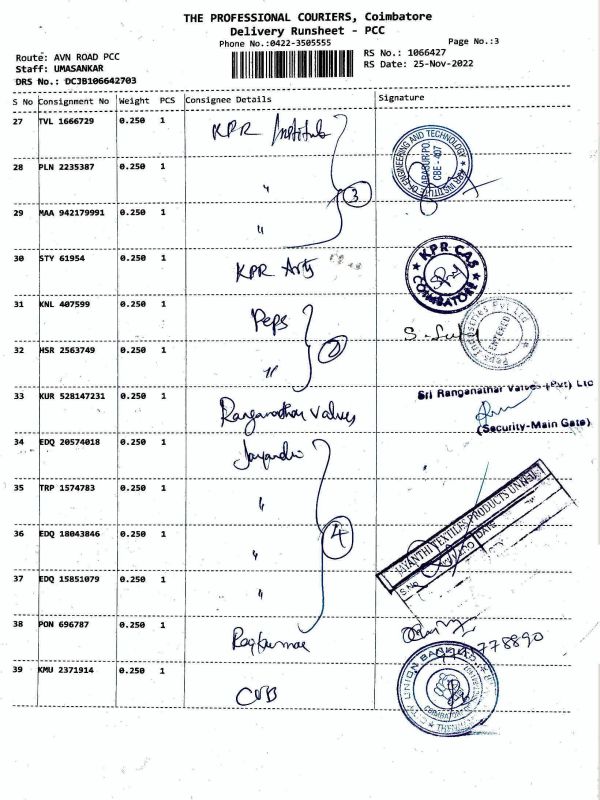 THE PROFESSIONAL COURIERS, Coimbatore
Delivery Runsheet - PCC
Phone No.:0422-3505555
Page No.:3
Route: AVN ROAD PCC
RS No.: 1066427
Staff: UMASANKAR
RS Date: 25-Nov-2022
DRS No.: DCJB106642703
S No Consignment No Weight PCS Consignee Details Signature
27 TVL 1666729 0.250 1 KPR Institute
KPR INSTITUTE OF ENGINEERING AND TECHNOLOGY
ARASUR PO.
CBE - 407
28 PLN 2235387 0.250 1 "
3
29 MAA 942179991 0.250 1 "
30 STY 61954 0.250 1 KPR Arts
KPR CAS
COIMBATORE
31 KNL 407599 0.250 1 Peps
Peps Industries Pvt Ltd
ENTERED
32 HSR 2563749 0.250 1 "
33 KUR 528147231 0.250 1 Ranganathar Valves
Sri Ranganathar Valves (Pvt) Ltd
(Security-Main Gate)
34 EDQ 20574018 0.250 1
35 TRP 1574783 0.250 1 "
JAYANTHI TEXTILES PRODUCTS UNIT
S.No
DATE
36 EDQ 18043846 0.250 1 "
4
37 EDQ 15851079 0.250 1 "
38 PON 696787 0.250 1 Rajkumar
39 KMU 2371914 0.250 1 CUB
CITY UNION BANK LTD
COIMBATORE